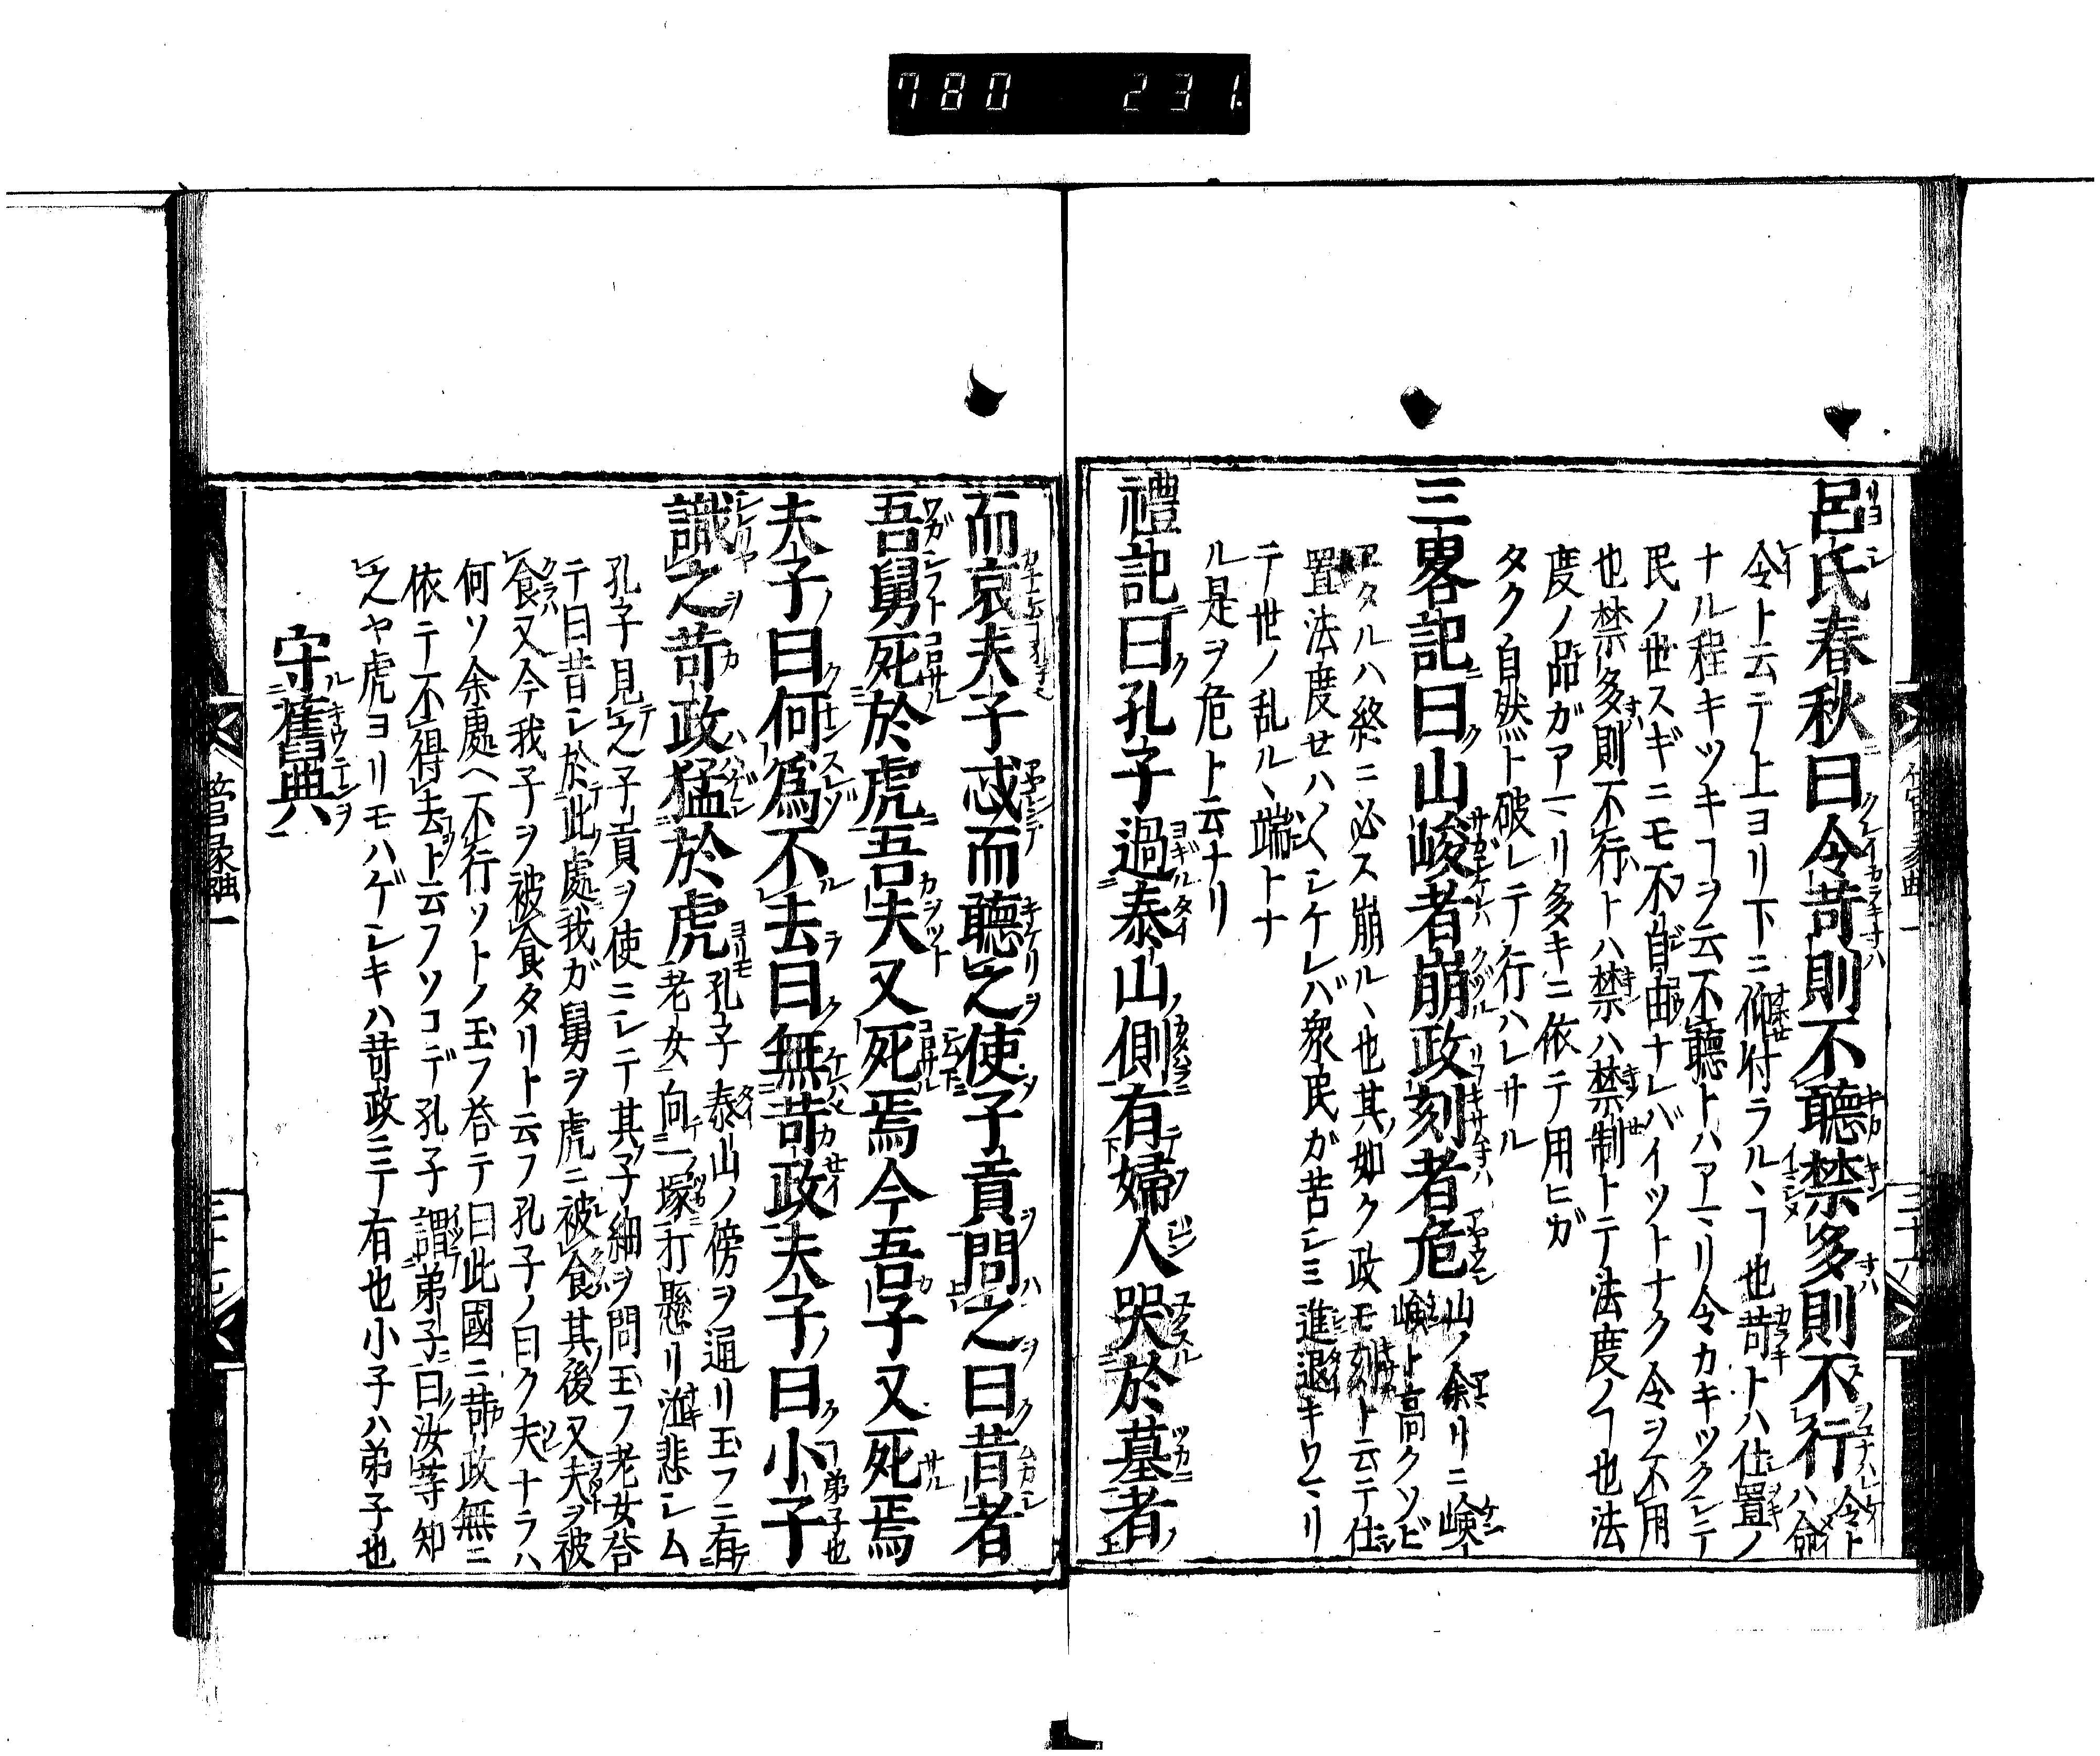 780 231.
呂氏春秋曰令苛則不聽禁多則不行令トハ命
令ト云テ上ヨリ下ニ仰付ラルヽヿ也苛トハ仕置ノ
ナル程キツキヿヲ云不聽トハアマリ令カキツクシテ
民ノ世スギニモ不自由ナレバイツトナク令ヲ不用
也禁多則不行トハ禁ハ禁制トテ法度ノヿ也法
度ノ品ガアマリ多キニ依テ用ヒガ
タク自然ト破レテ行ハレサル
三畧記曰山峻者崩政刻者危山ノ余リニ嶮
嶮ト高クソビ
アタルハ終ニ必ス崩ルヽ也其如ク政モ刻ト云テ仕
置法度セハ〱シケレバ衆民ガ苦シミ進退キワマリ
テ世ノ乱ルヽ端トナ
ル是ヲ危ト云ナリ
禮記曰孔子過泰山側有婦人哭於墓者
而哀夫子忒而聽之使子貢問之曰昔者
吾舅死於虎吾夫又死焉今吾子又死焉
夫子曰何爲不去曰無苛政夫子曰小子弟子也
識之苛政猛於虎孔子泰山ノ傍ヲ通リ玉フニ有
老女向一塚打懸リ泣悲シム
孔子見之子貢ヲ使ニシテ其子細ヲ問玉フ老女答
テ曰昔シ於此處我ガ舅ヲ虎ニ被食其後又夫ヲ被
食又今我子ヲ被食タリト云フ孔子ノ曰ク夫ナラハ
何ソ余處ヘ不行ソトノ玉フ答テ曰此國ニ苛政無ニ
依テ不得去ト云フソコデ孔子謂弟子曰汝等知
之ヤ虎ヨリモハゲシキハ苛政ニテ有也小子ハ弟子也
守舊典